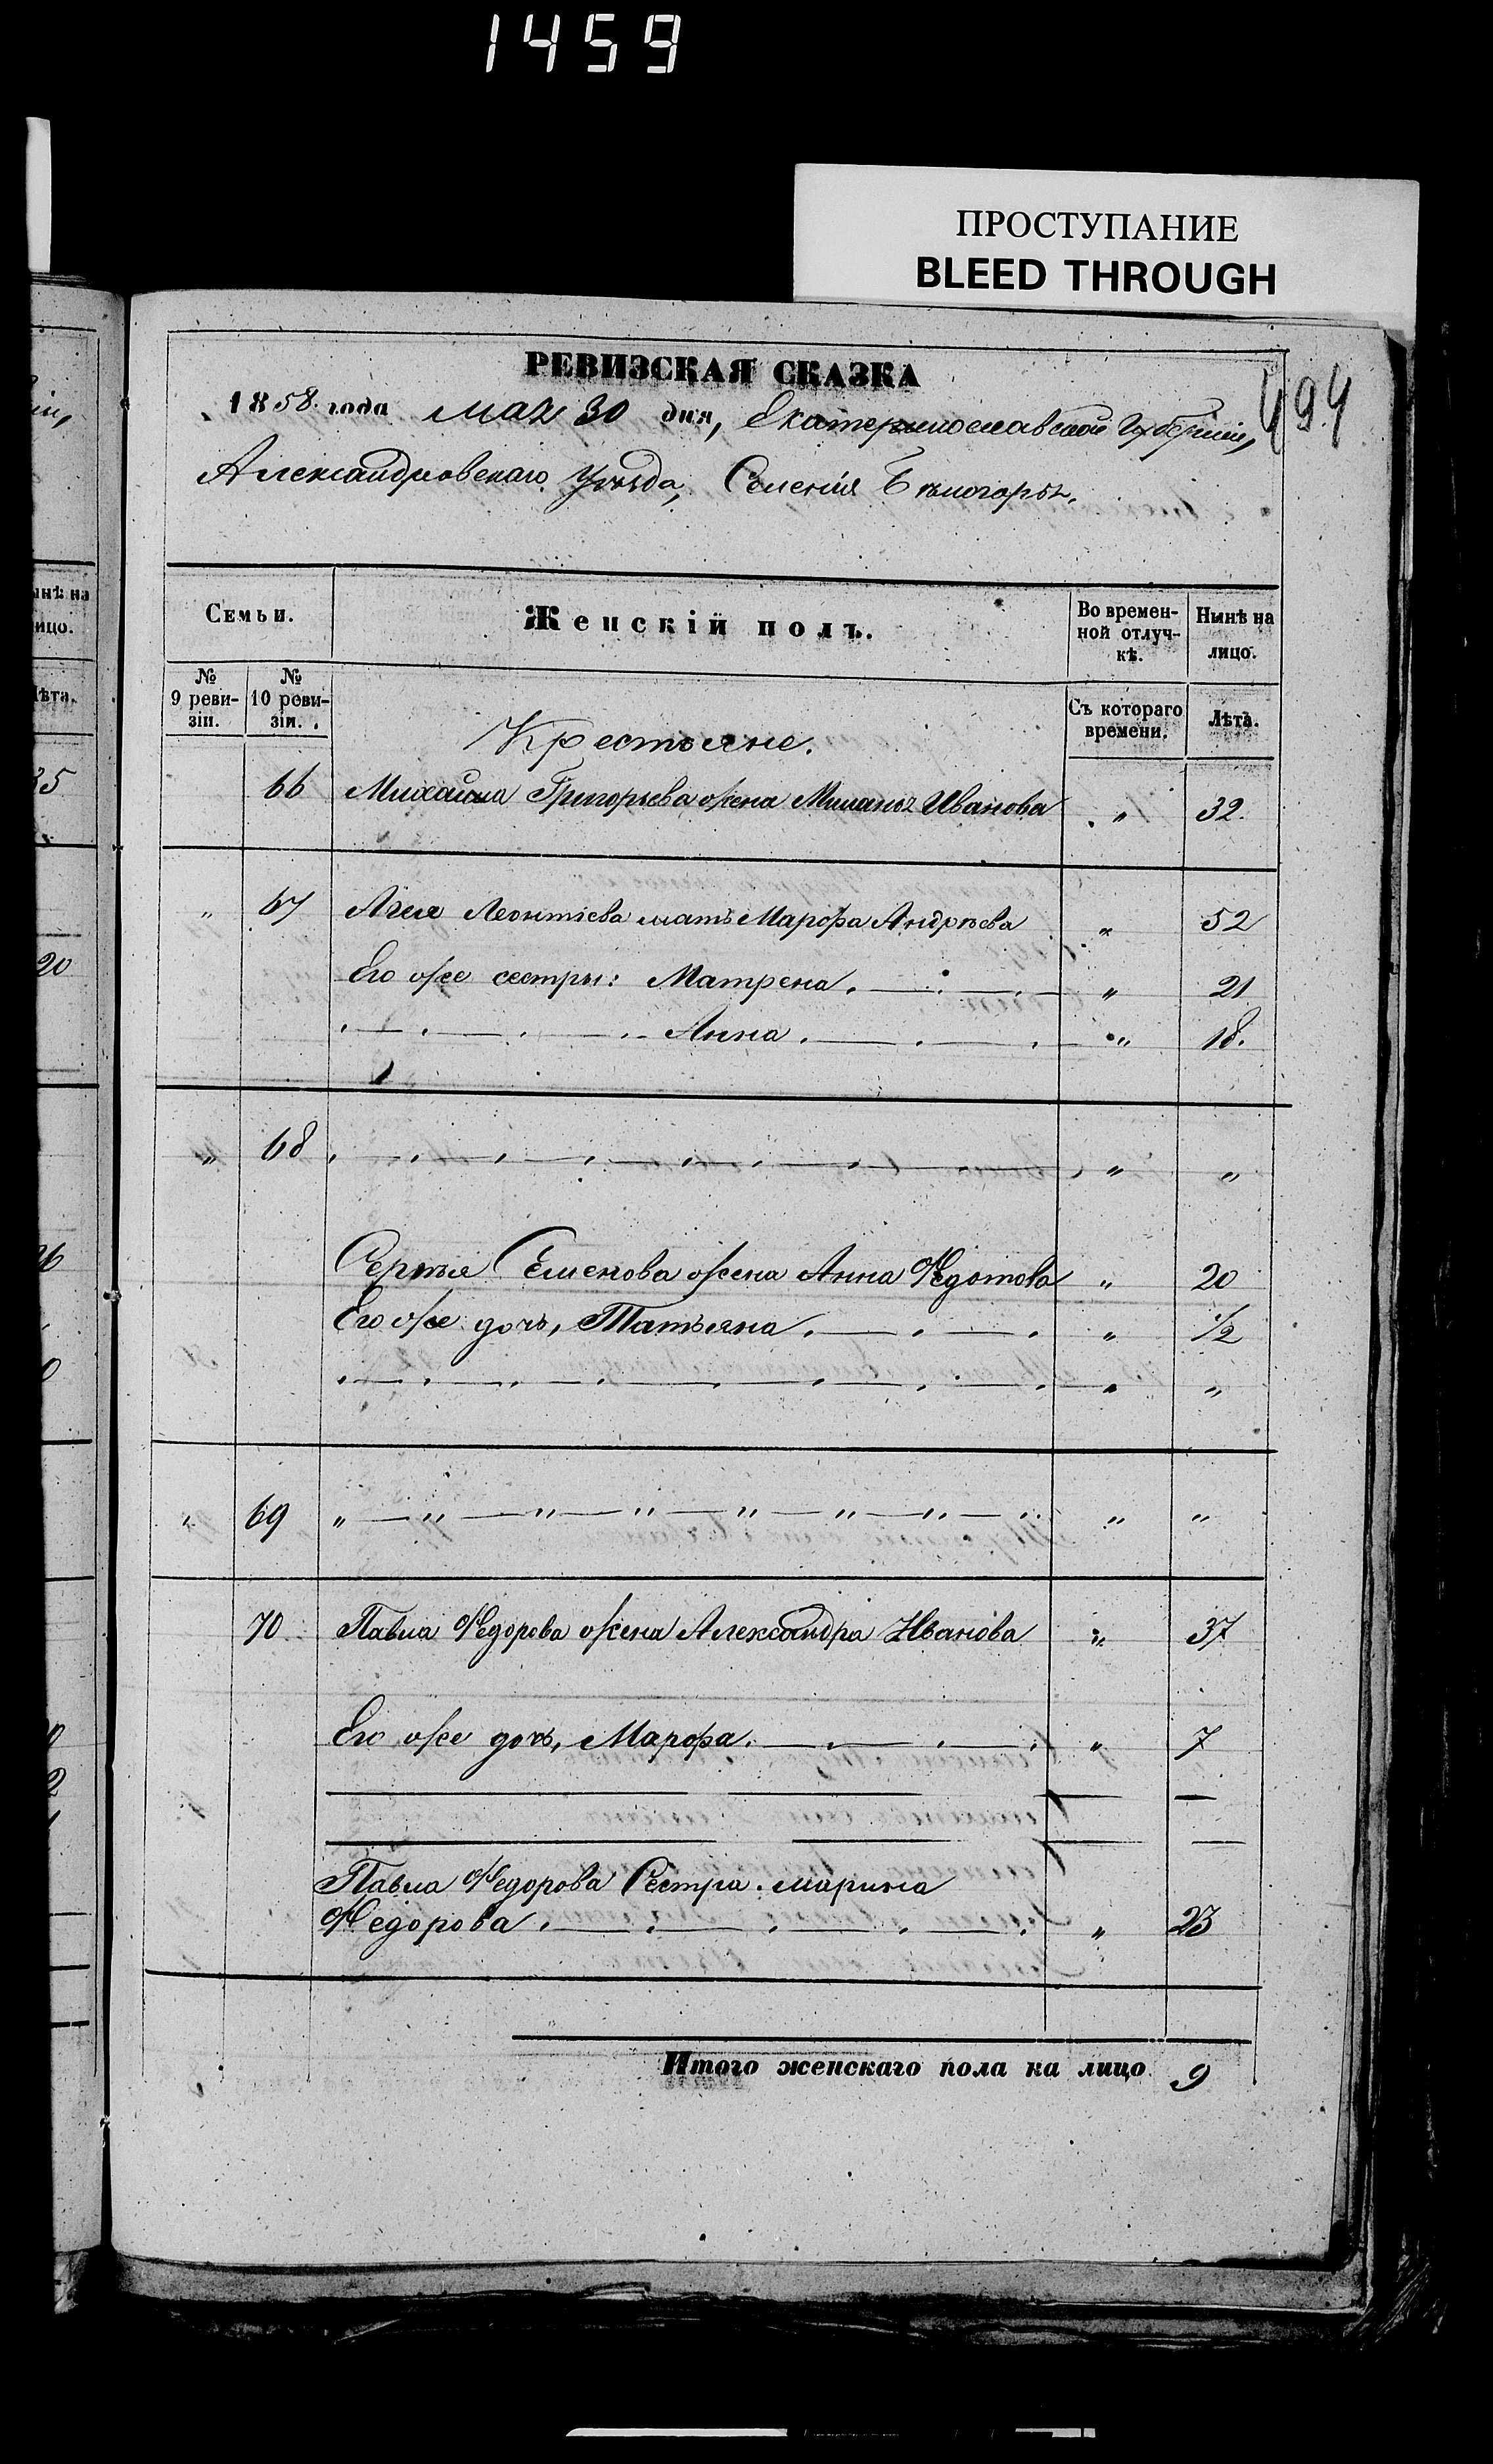 1459
ПРОСТУПАНИЕ
BLEED THROUGH
РЕВИЗСКАЯ СКАЗКА
1858 года мая 30 дня, Екатеринославской Губерніи,
494
Александровскаго Уѣзда, Селенія Бѣлогоръ.
Семьи. Женскій полъ. Во временной отлучкѣ. Нынѣ на лицо.
№ 9 ревизіи. № 10 ревизіи. Съ котораго времени. Лѣта.
Крестьяне.
66 Михайла Григорьева жена Миланья Иванова „ 32.
„ 67 Леонтіева мать Марфа Андрѣева „ 52
Его же сестры: Матрена. — . — . „ 21
. — . — . — .. Анна. — . — . „ 18.
„ 68 . — . — . — . — . — . — . — . — „ „
Сергѣя Семенова жена Анна Федотова „ 20
Его же дочь, Татьяна. — . — . „ 1/2
. — . — . — . — . — . — . — . — . „ „
„ 69 „ — „ — „ — „ — „ — „ — „ — „ „ „
70 Павла Федорова жена Александра Иванова „ 37
Его же дочь, Марфа. — . — . — . „ 7
— — — —
— — — —
Павла Федорова Сестра. марина
Федорова. — . — . — . — . „ 23
Итого женскаго пола на лицо 9